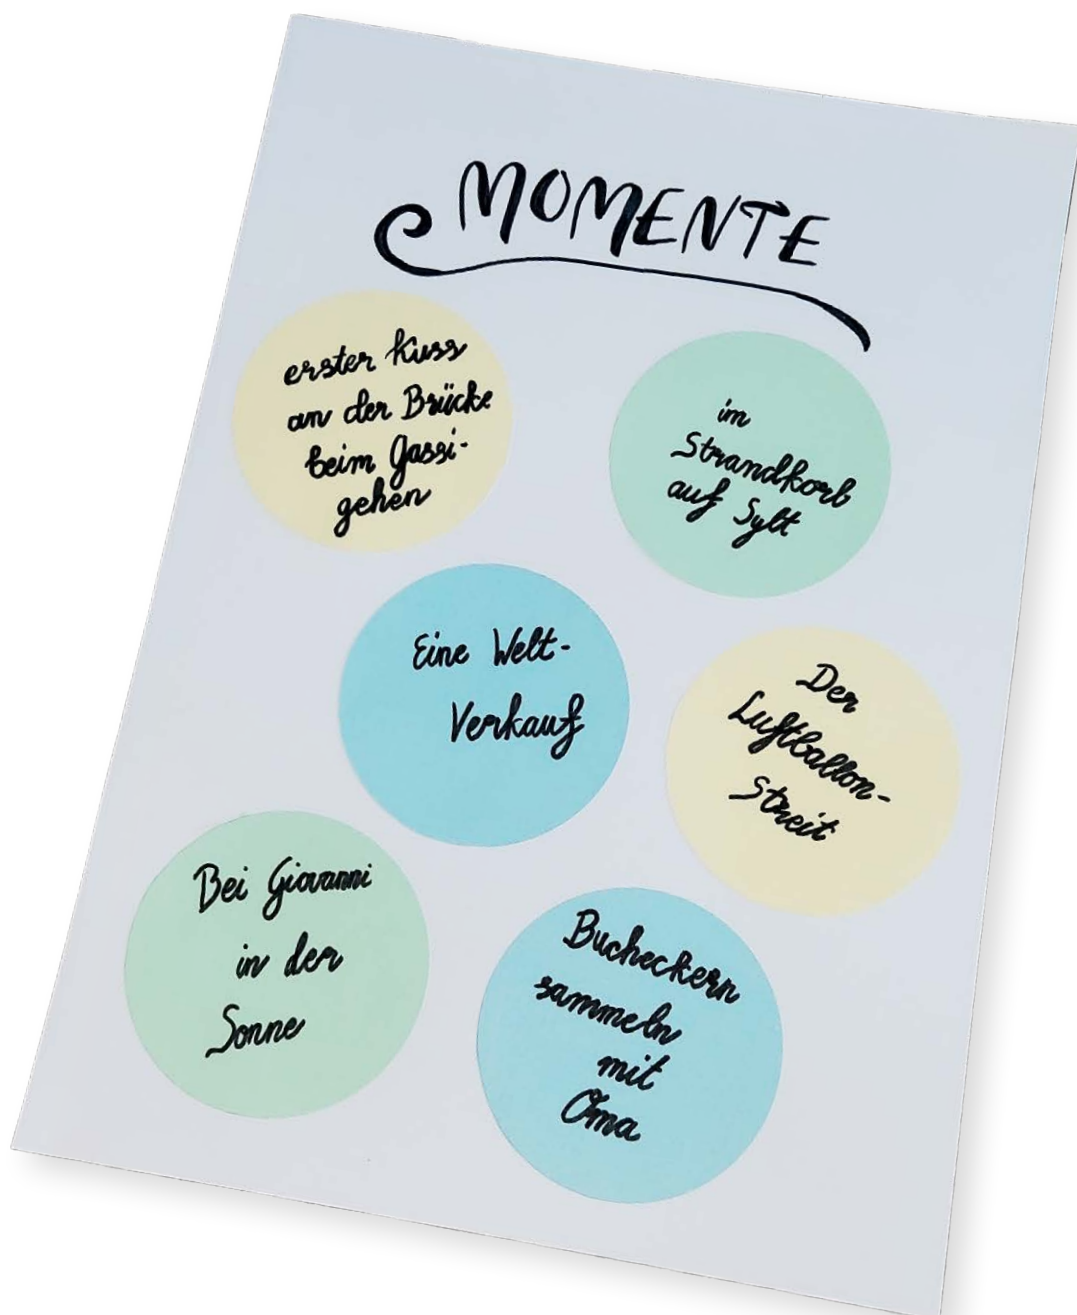 MOMENTE
erster Kuss
an der Brücke
beim Gassi-
gehen
im
Strandkorb
auf Sylt
Eine Welt-
Verkauf
Der
Luftballon-
Streit
Bei Giovanni
in der
Sonne
Bucheckern
sammeln
mit
Oma